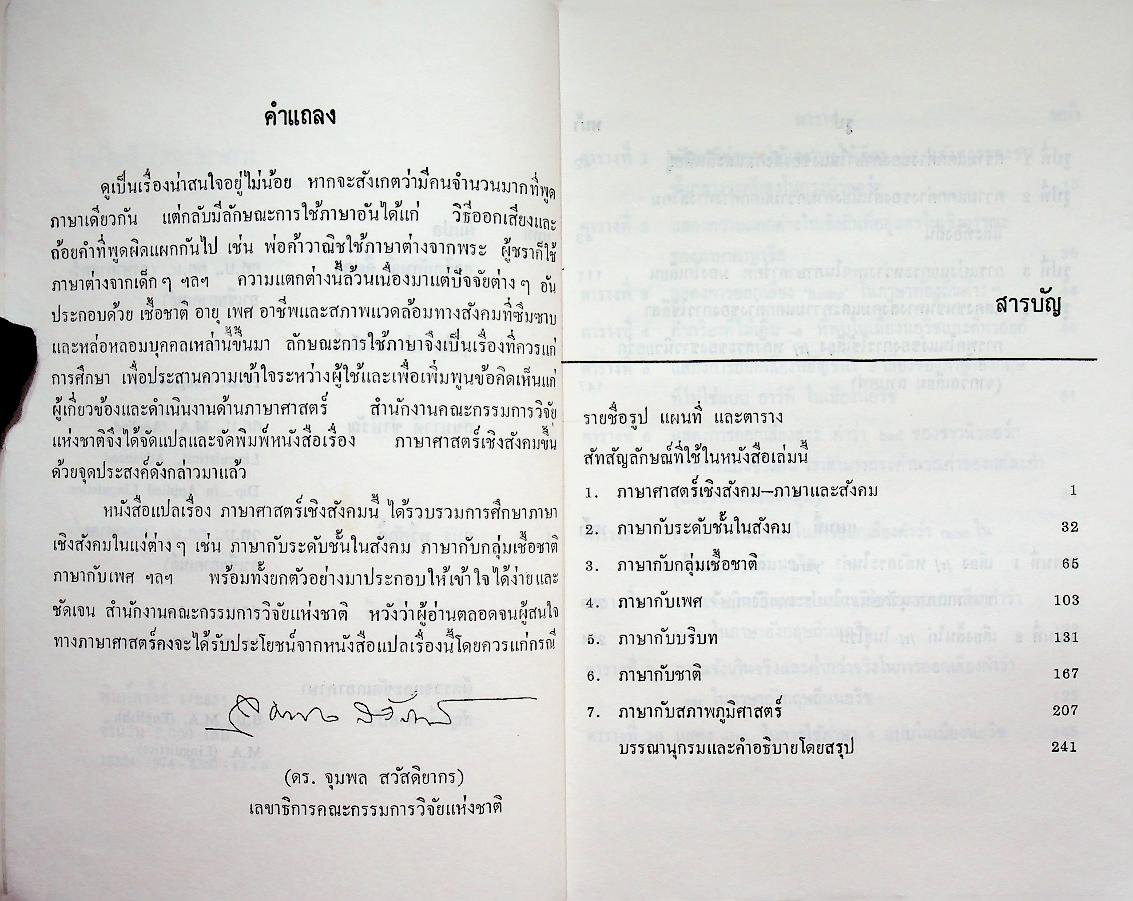 คำแถลง
ดูเป็นเรื่องน่าสนใจอยู่ไม่น้อย หากจะสังเกตว่ามีคนจำนวนมากที่พูด
ภาษาเดียวกัน แต่กลับมีลักษณะการใช้ภาษาอันได้แก่ วิธีออกเสียงและ
ถ้อยคำที่พูดผิดแผกกันไป เช่น พ่อค้าวาณิชใช้ภาษาต่างจากพระ ผู้ชราก็ใช้
ภาษาต่างจากเด็ก ๆ ฯลฯ ความแตกต่างนี้ล้วนเนื่องมาแต่ปัจจัยต่าง ๆ อัน
ประกอบด้วย เชื้อชาติ อายุ เพศ อาชีพและสภาพแวดล้อมทางสังคมที่ซึมซาบ
และหล่อหลอมบุคคลเหล่านี้ขึ้นมา ลักษณะการใช้ภาษาจึงเป็นเรื่องที่ควรแก่
การศึกษา เพื่อประสานความเข้าใจระหว่างผู้ใช้และเพื่อเพิ่มพูนข้อคิดเห็นแก่
ผู้เกี่ยวข้องและดำเนินงานด้านภาษาศาสตร์ สำนักงานคณะกรรมการวิจัย
แห่งชาติจึงได้จัดแปลและจัดพิมพ์หนังสือเรื่อง ภาษาศาสตร์เชิงสังคมขึ้น
ด้วยจุดประสงค์ดังกล่าวมาแล้ว
หนังสือแปลเรื่อง ภาษาศาสตร์เชิงสังคมนี้ ได้รวบรวมการศึกษาภาษา
เชิงสังคมในแง่ต่าง ๆ เช่น ภาษากับระดับชั้นในสังคม ภาษากับกลุ่มเชื้อชาติ
ภาษากับเพศ ฯลฯ พร้อมทั้งยกตัวอย่างมาประกอบให้เข้าใจได้ง่ายและ
ชัดเจน สำนักงานคณะกรรมการวิจัยแห่งชาติ หวังว่าผู้อ่านตลอดจนผู้สนใจ
ทางภาษาศาสตร์คงจะได้รับประโยชน์จากหนังสือแปลเรื่องนี้โดยควรแก่กรณี
(ดร. จุมพล สวัสดิยากร)
เลขาธิการคณะกรรมการวิจัยแห่งชาติ
สารบัญ
รายชื่อรูป แผนที่ และตาราง
สัทสัญลักษณ์ที่ใช้ในหนังสือเล่มนี้
1. ภาษาศาสตร์เชิงสังคม—ภาษาและสังคม 1
2. ภาษากับระดับชั้นในสังคม 32
3. ภาษากับกลุ่มเชื้อชาติ 65
4. ภาษากับเพศ 103
5. ภาษากับบริบท 131
6. ภาษากับชาติ 167
7. ภาษากับสภาพภูมิศาสตร์ 207
บรรณานุกรมและคำอธิบายโดยสรุป 241